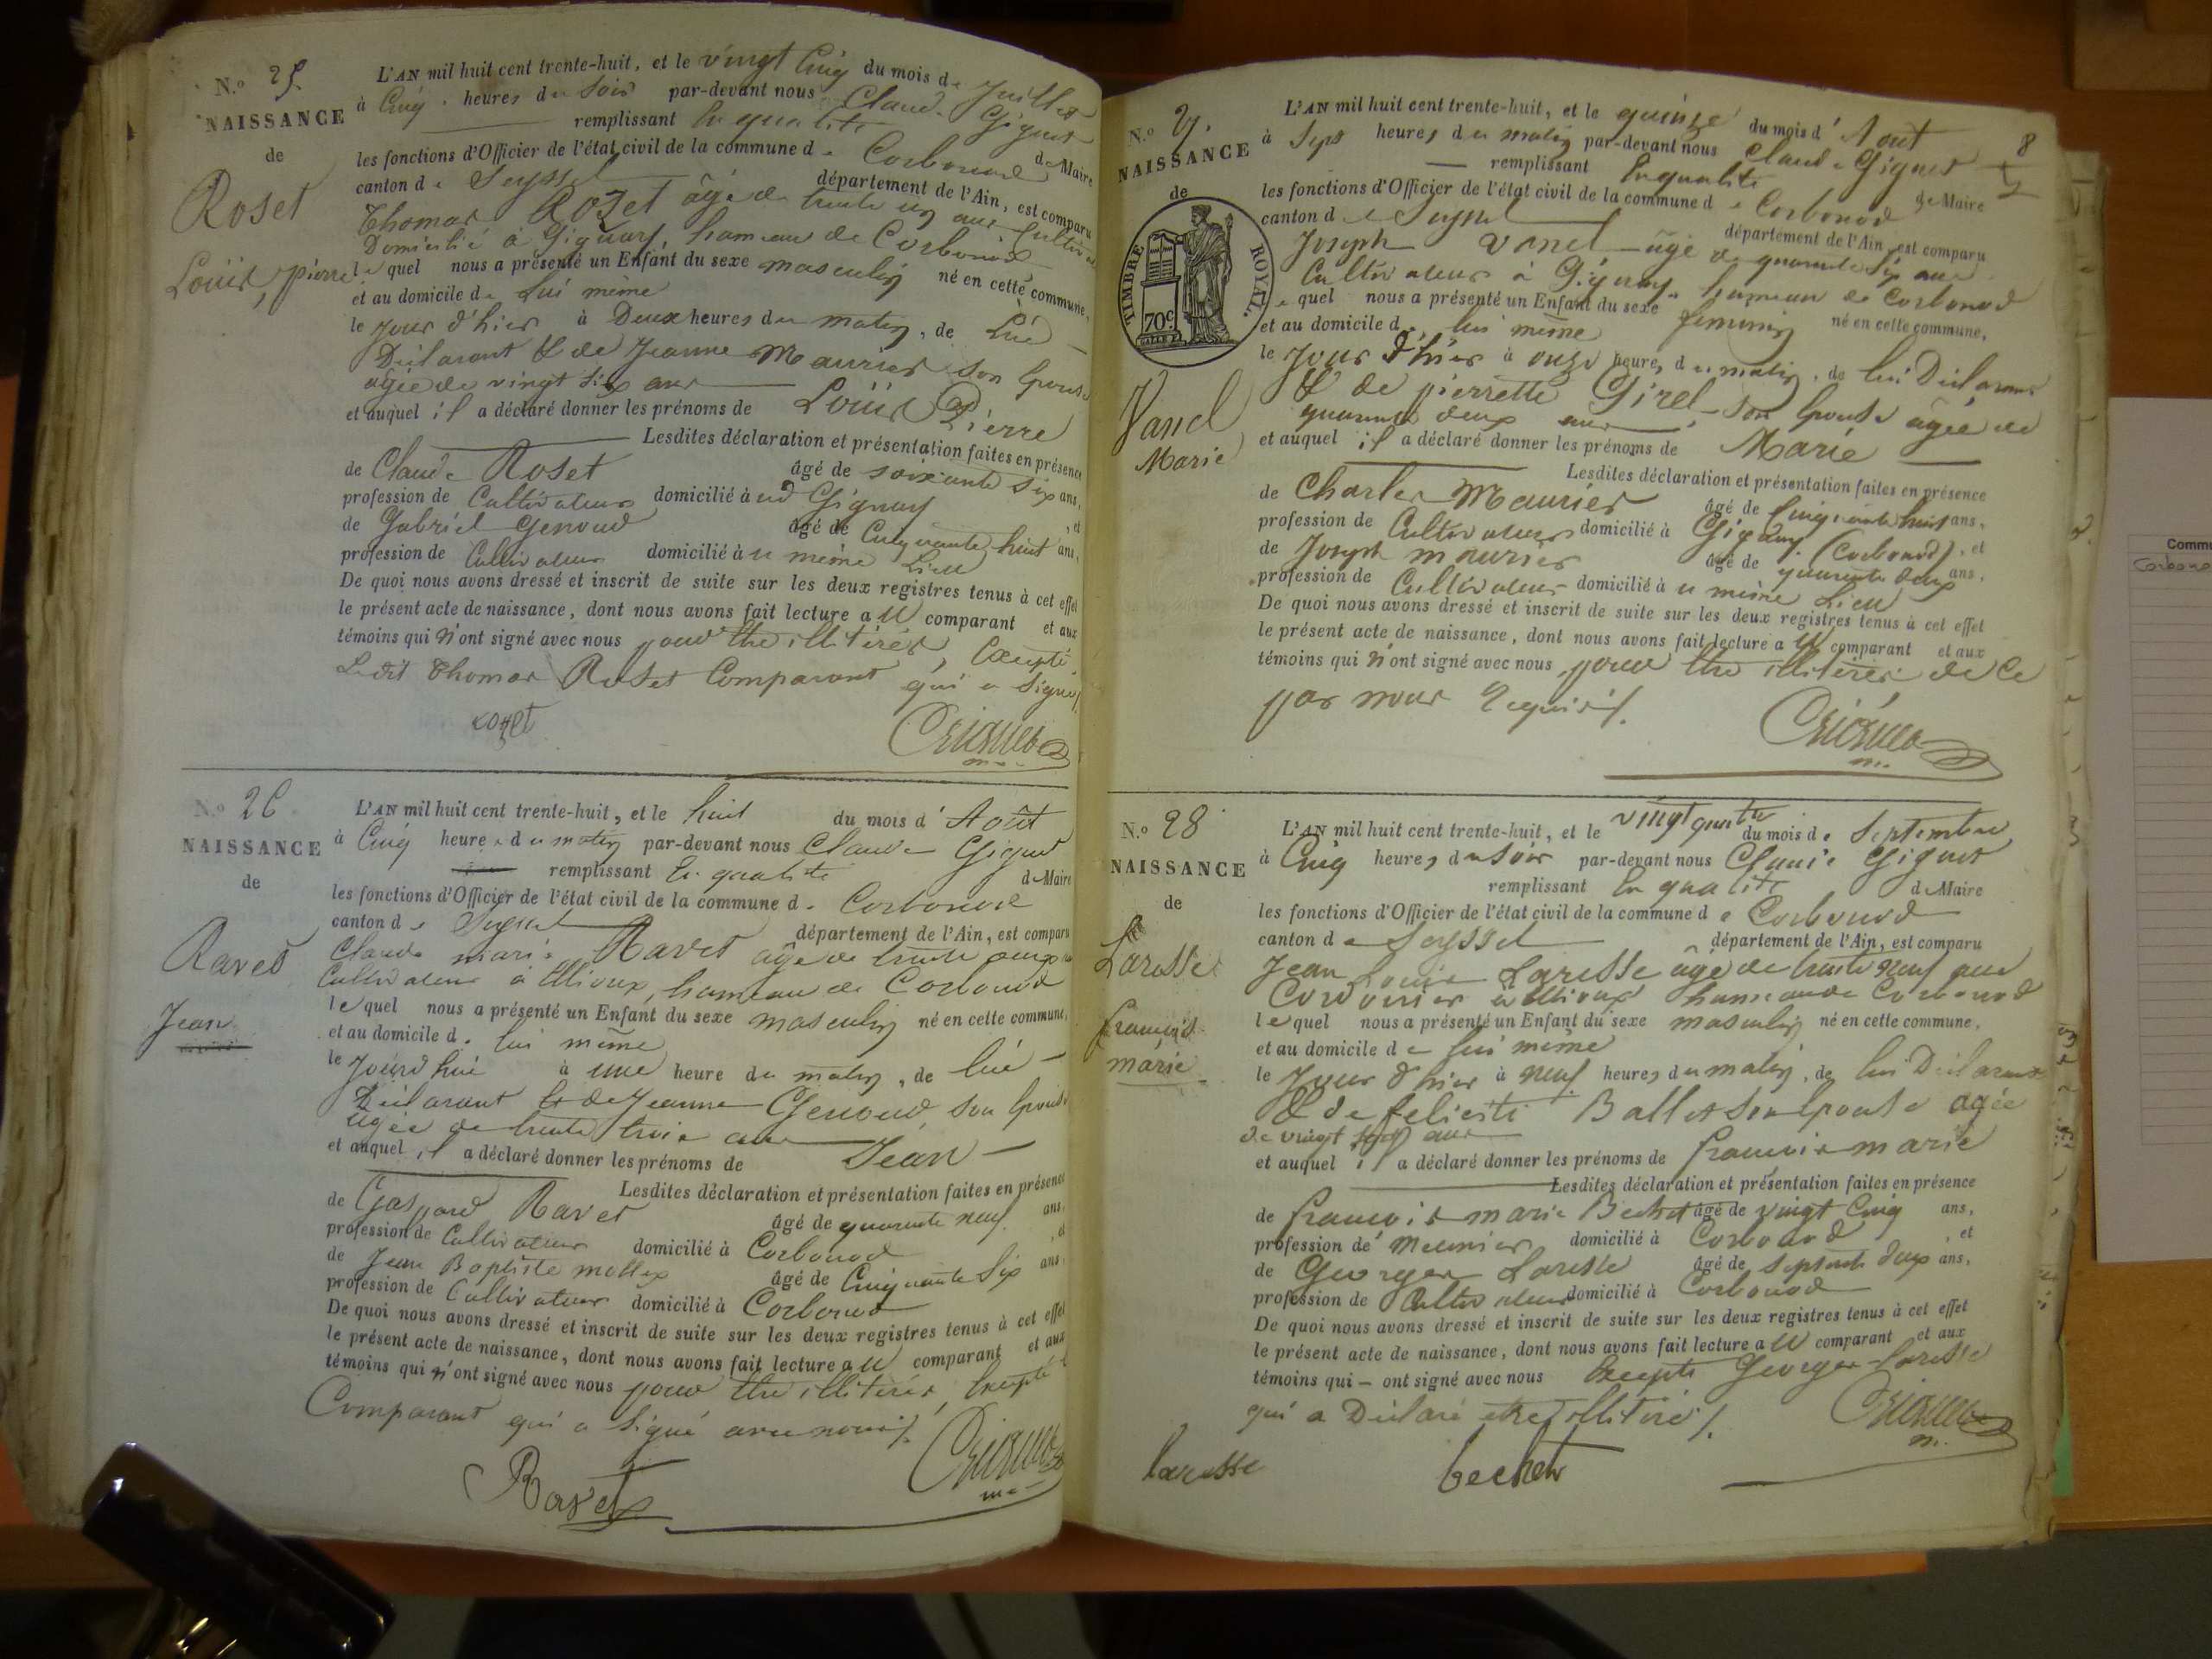 N.° 25
NAISSANCE
de
Roset
Louis, pierre
L'AN mil huit cent trente-huit, et le vingt Cinq du mois de Juillet
à Cinq heures du Soir par-devant nous Claude Giguet
remplissant En qualité de Maire
les fonctions d'Officier de l'état civil de la commune de Corbonod
canton de Seyssel département de l'Ain, est comparu
Thomas Rozet âgé de trente un ans Cultivateur
Domicilié à Gignay hameau de Corbonod
lequel nous a présenté un Enfant du sexe masculin né en cette commune,
et au domicile de Lui même
le jour d'hier à Deux heures du matin, de Lui
Déclarant & de Jeanne Maurier son Epouse
agée de vingt six ans
et auquel il a déclaré donner les prénoms de Louis Pierre
Lesdites déclaration et présentation faites en présence
de Claude Roset âgé de soixante six ans,
profession de Cultivateur domicilié à ud Gignay, et
de Gabriel Genoud âgé de Cinquante huit ans,
profession de Cultivateur domicilié à u même Lieu
De quoi nous avons dressé et inscrit de suite sur les deux registres tenus à cet effet
le présent acte de naissance, dont nous avons fait lecture au comparant et aux
témoins qui n'ont signé avec nous pour être illitérés, Excepté
Ledit Thomas Roset Comparant qui a signé
rozet
Giguet
N.° 26
NAISSANCE
de
Ravet
Jean
L'AN mil huit cent trente-huit, et le huit du mois d'Août
à Cinq heures du matin par-devant nous Claude Giguet
remplissant En qualité de Maire
les fonctions d'Officier de l'état civil de la commune de Corbonod
canton de Seyssel département de l'Ain, est comparu
Claude marie Ravet âgé de trente deux ans
Cultivateur à Etlioux, hameau de Corbonod
lequel nous a présenté un Enfant du sexe masculin né en cette commune,
et au domicile de lui même
le Jourd'hui à une heure du matin, de lui
Déclarant & de Jeanne Genoud, son Epouse
agée de trente trois ans
et auquel il a déclaré donner les prénoms de Jean
Lesdites déclaration et présentation faites en présence
de Gaspard Ravet âgé de quarante neuf ans,
profession de Cultivateur domicilié à Corbonod, et
de Jean Baptiste mollex âgé de Cinquante Six ans,
profession de Cultivateur domicilié à Corbonod
De quoi nous avons dressé et inscrit de suite sur les deux registres tenus à cet effet
le présent acte de naissance, dont nous avons fait lecture au comparant et aux
témoins qui n'ont signé avec nous pour être illitérés, Excepté le
Comparant qui a signé avec nous
Ravet
Giguet
8
N.° 27.
NAISSANCE
de
TIMBRE ROYAL.
70c
Vanel
Marie
L'AN mil huit cent trente-huit, et le quinze du mois d'Aout
à Sept heures du matin par-devant nous Claude Giguet
remplissant En qualité de Maire
les fonctions d'Officier de l'état civil de la commune de Corbonod
canton de Seyssel département de l'Ain, est comparu
Joseph Vanel âgé de quarante Six ans
Cultivateur à Gignay hameau de Corbonod
lequel nous a présenté un Enfant du sexe feminin né en cette commune,
et au domicile de lui même
le Jour d'hier à onze heures du matin, de lui Déclarant
& de pierrette Girel son Epouse âgée de
quarante deux ans
et auquel il a déclaré donner les prénoms de Marie
Lesdites déclaration et présentation faites en présence
de Charles Maurier âgé de Cinquante huit ans,
profession de Cultivateur domicilié à Gignay (Corbonod), et
de Joseph maurier âgé de quarante deux ans,
profession de Cultivateur domicilié à u même Lieu
De quoi nous avons dressé et inscrit de suite sur les deux registres tenus à cet effet
le présent acte de naissance, dont nous avons fait lecture au comparant et aux
témoins qui n'ont signé avec nous, pour être illitérés de ce
par nous Requis
Giguet
N.° 28
NAISSANCE
de
Laresse
francois
marie
L'AN mil huit cent trente-huit, et le vingt quatre du mois de Septembre
à Cinq heures du Soir par-devant nous Claude Giguet
remplissant En qualité de Maire
les fonctions d'Officier de l'état civil de la commune de Corbonod
canton de Seyssel département de l'Ain, est comparu
Jean Louis Laresse âgé de trente neuf ans
Cordonnier à Etlioux hameau de Corbonod
lequel nous a présenté un Enfant du sexe masculin né en cette commune,
et au domicile de lui même
le Jour d'hier à neuf heures du matin, de lui Déclarant
& de felicité Ballet son Epouse agée
de vingt sept ans
et auquel il a déclaré donner les prénoms de francois marie
Lesdites déclaration et présentation faites en présence
de francois marie Bechet âgé de vingt Cinq ans,
profession de Meunier domicilié à Corbonod, et
de Georges Laresse âgé de septante deux ans,
profession de Cultivateur domicilié à Corbonod
De quoi nous avons dressé et inscrit de suite sur les deux registres tenus à cet effet
le présent acte de naissance, dont nous avons fait lecture au comparant et aux
témoins qui ont signé avec nous Excepté Georges Laresse
qui a Déclaré etre illitéré
Giguet
laresse
bechet
Commu
Corbono